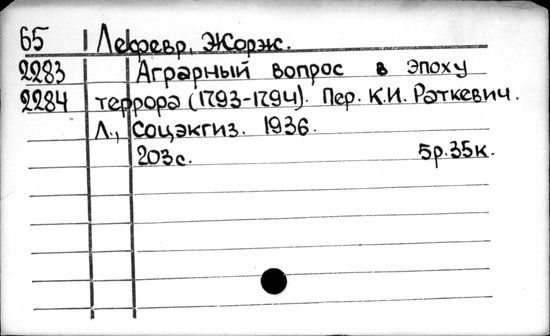 65 Лефевр, Жорж.
2283 Аграрный вопрос в эпоху
2284 террора (1793-1794). Пер. К.И. Раткевич.
Л., Соцэкгиз. 1936.
203с. 5р.35к.